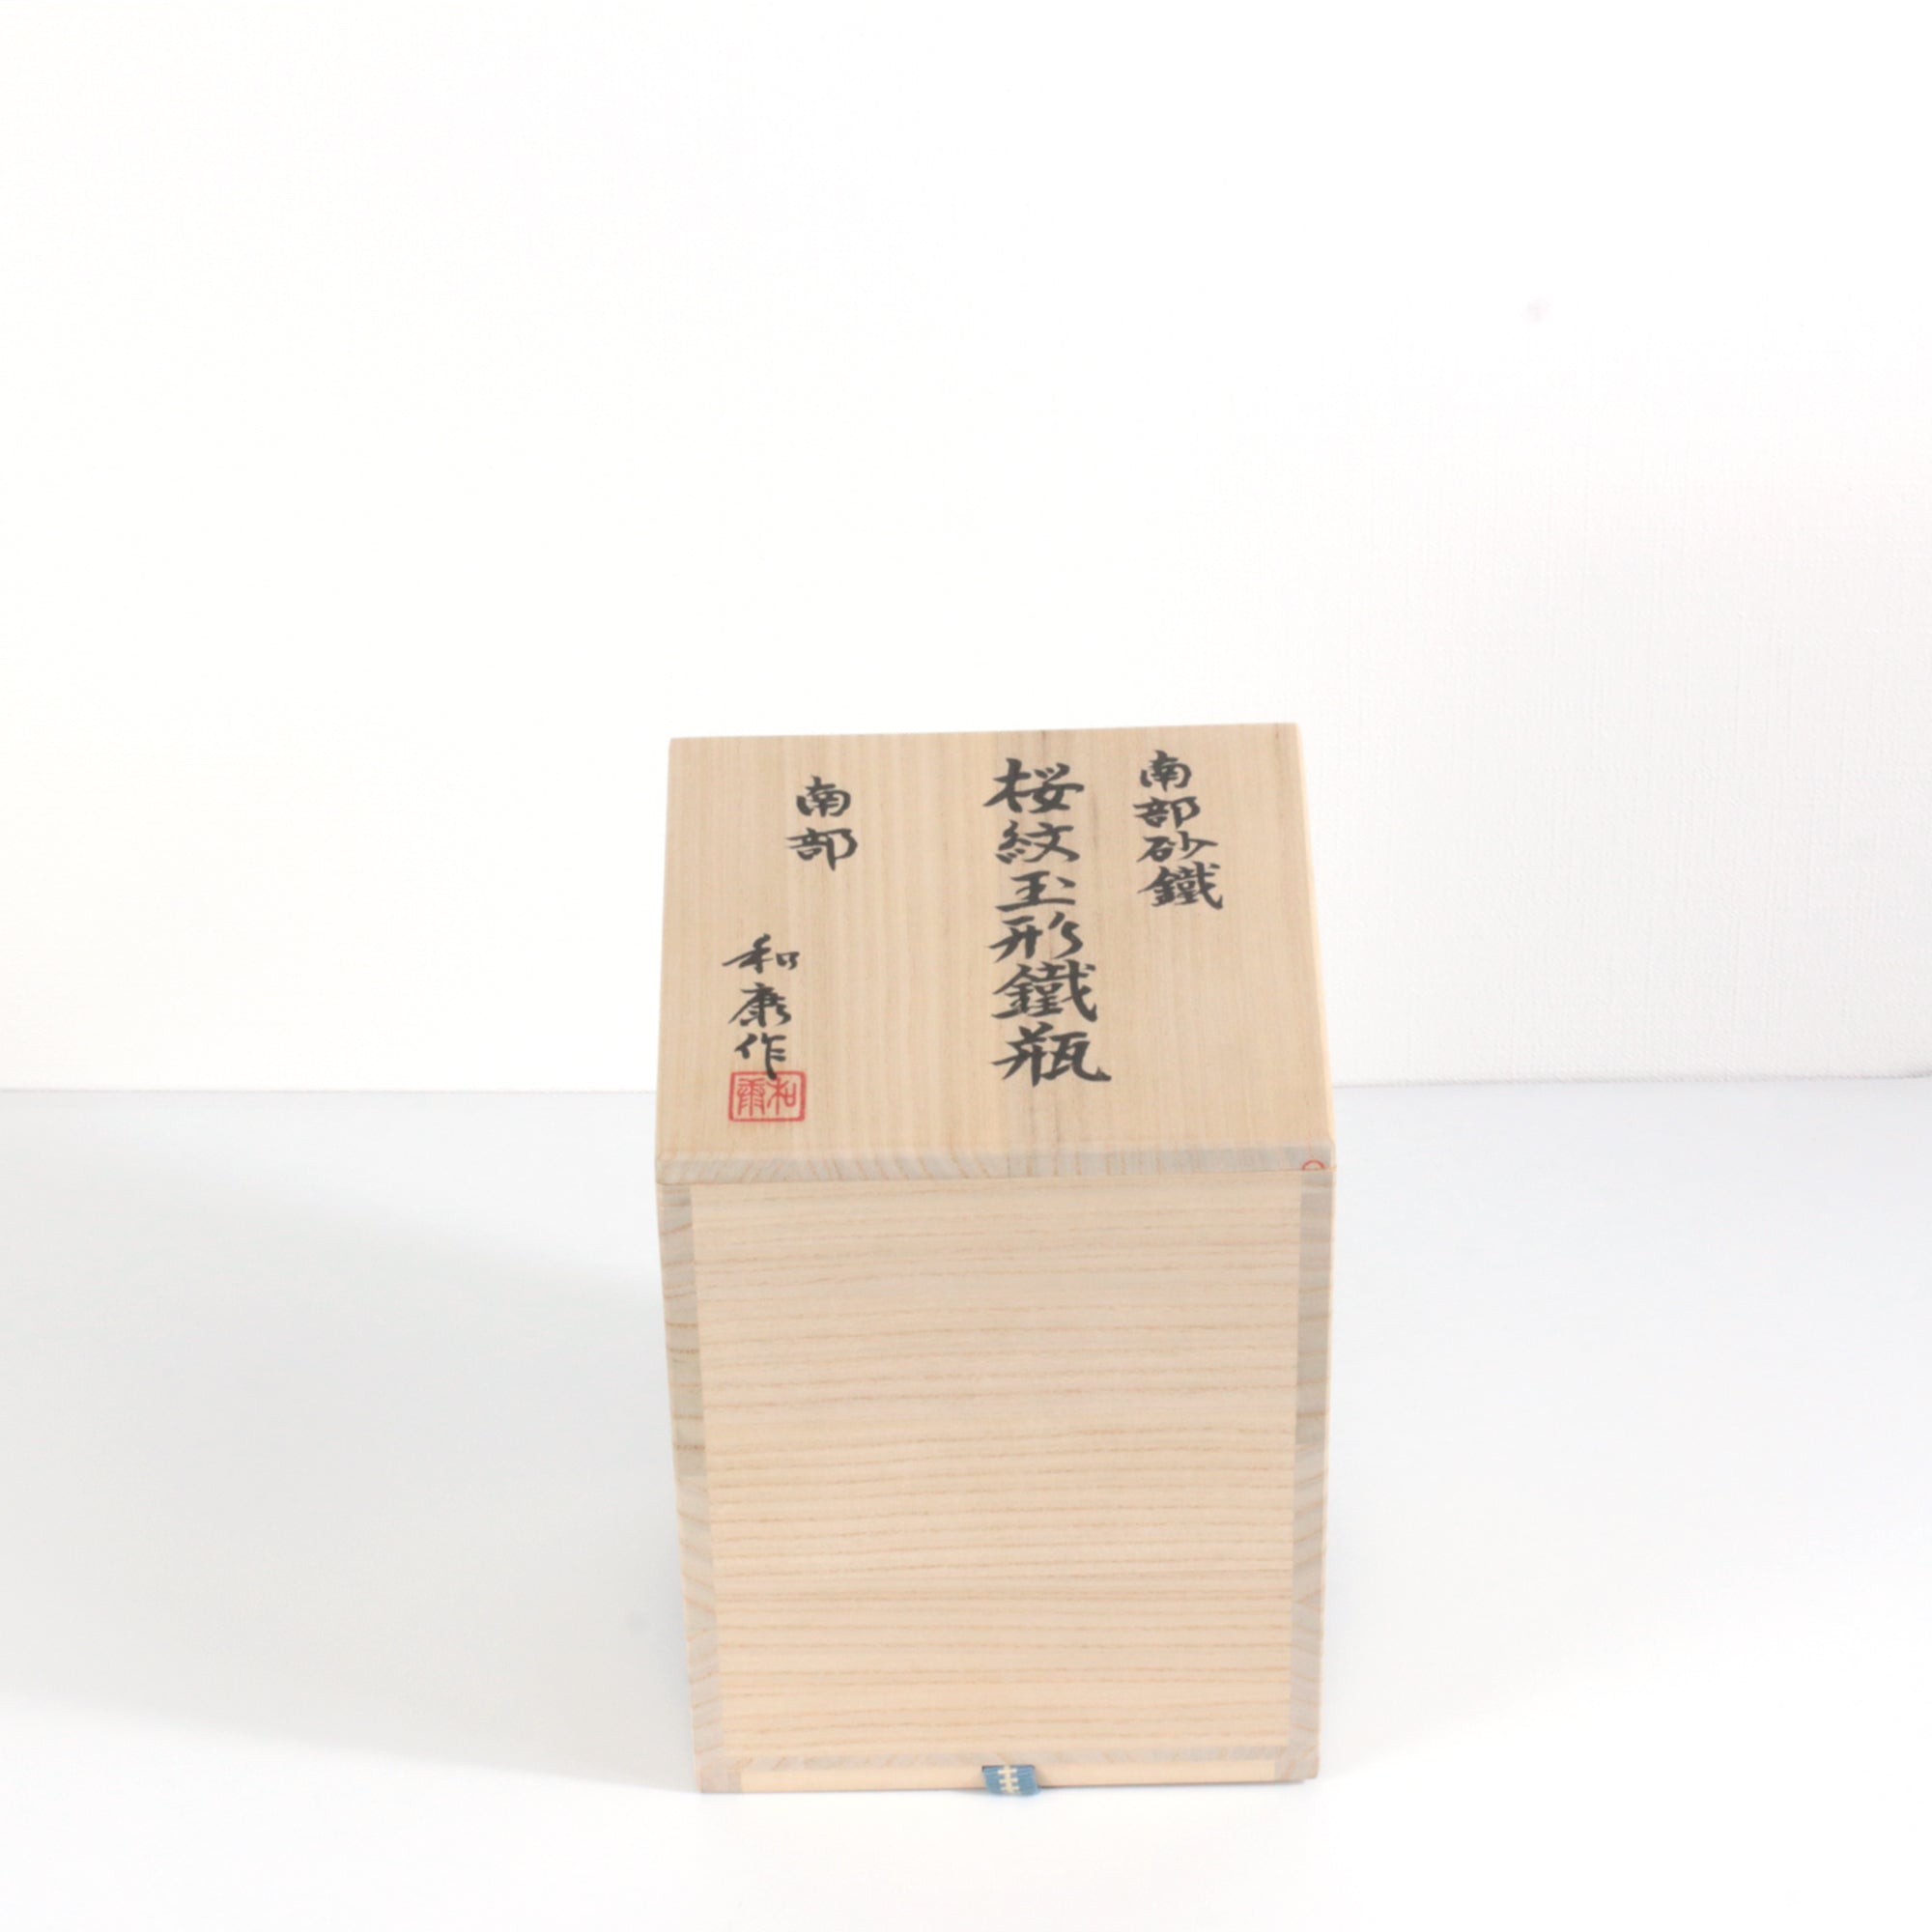 南部砂鐵
桜紋玉形鐵瓶
南部
和康作
和康